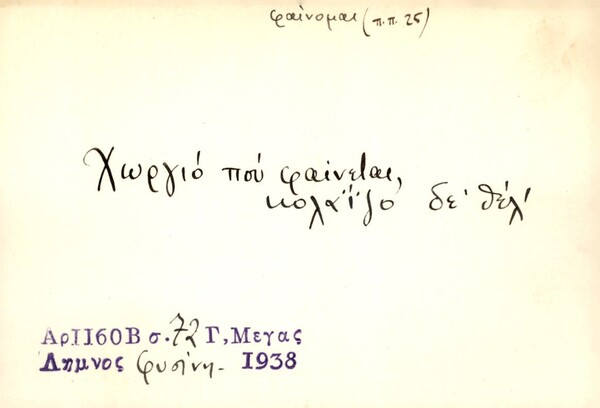 φαίνομαι (π.π. 25)
Χωργιό πού φαίνεται,
κολαΐζο δε' θέλ'
Αρ1160Β σ. 72 Γ, Μεγας
Λημνος Φυσίνη - 1938